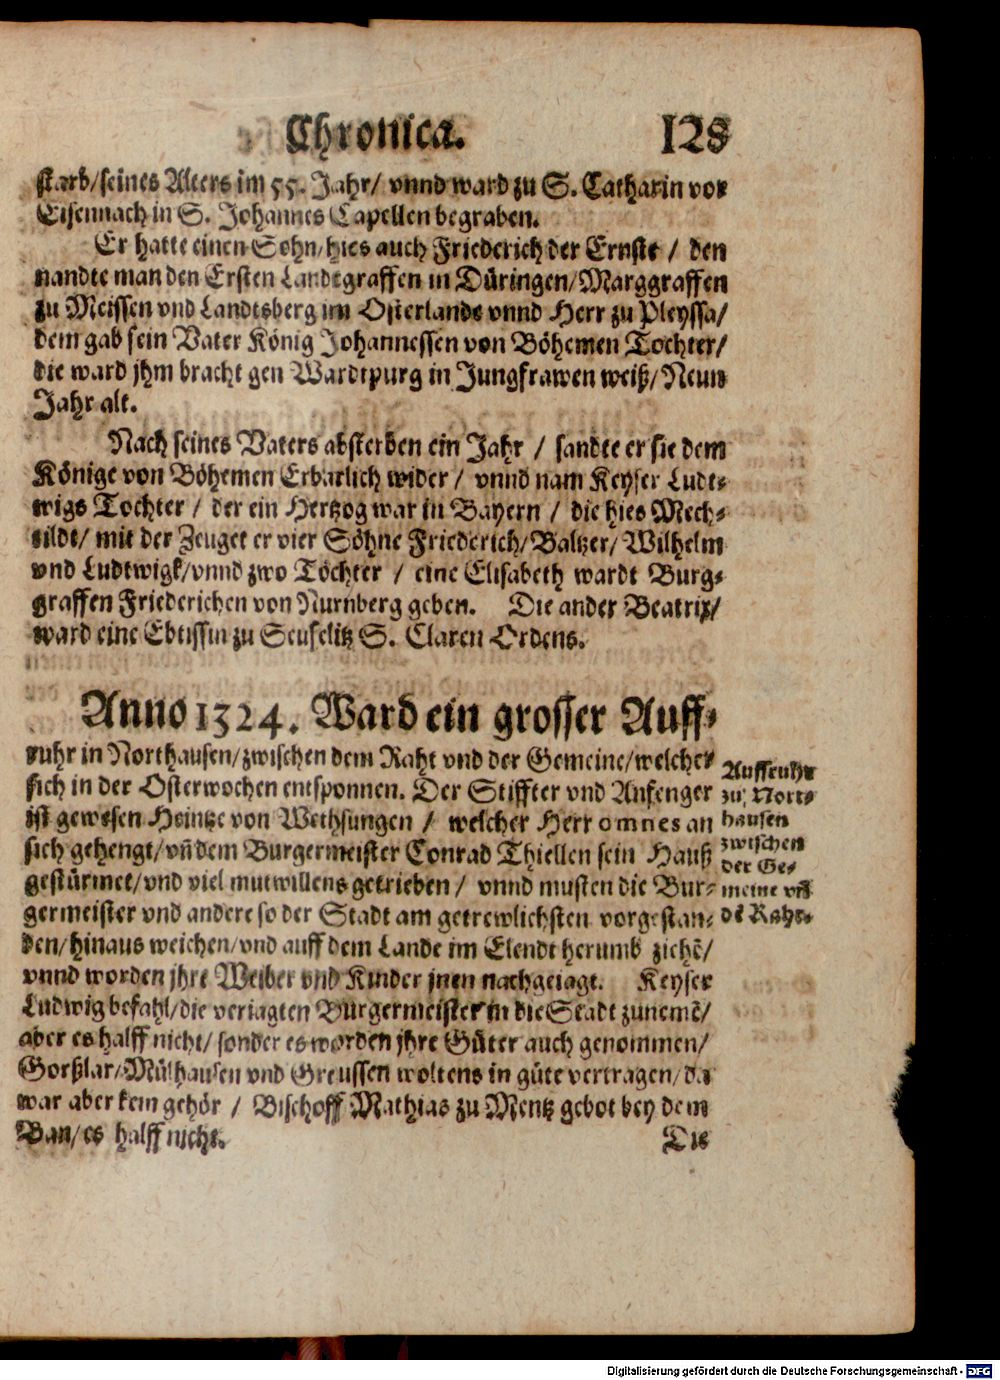 Chronica. 128
starb/seines Alters im 55. Jahr/ vnnd ward zu S. Catharin vor
Eisennach in S. Johannes Capellen begraben.
Er hatte einen Sohn/hies auch Friederich der Ernste / den
nandte man den Ersten Landtgraffen in Düringen/Marggraffen
zu Meissen vnd Landtsberg im Osterlande vnnd Herr zu Pleyssa/
dem gab sein Vater König Johannessen von Böhemen Tochter/
die ward jhm bracht gen Wardtpurg in Jungfrawen weiß/Neun
Jahr alt.
Nach seines Vaters absterben ein Jahr / sandte er sie dem
Könige von Böhemen Erbarlich wider / vnnd nam Keyser Ludt-
wigs Tochter / der ein Hertzog war in Bayern / die hies Mech-
tildt/ mit der Zeuget er vier Söhne Friederich/Baltzer/Wilhelm
vnd Ludtwigk/vnnd zwo Töchter / eine Elisabeth wardt Burg-
graffen Friederichen von Nurnberg geben. Die ander Beatrix/
ward eine Ebtissin zu Seuselitz S. Claren Ordens.
Anno 1324. Ward ein grosser Auff-
ruhr in Northausen/zwischen dem Raht vnd der Gemeine/welcher
sich in der Osterwochen entsponnen. Der Stiffter vnd Anfenger
ist gewesen Heintze von Wethsungen / welcher Herr omnes an
sich gehengt/vñ dem Burgermeister Conrad Thiellen sein Hauß
gestürmet/vnd viel mutwillens getrieben / vnnd musten die Bur-
germeister vnd andere so der Stadt am getrewlichsten vorgestan-
den/hinaus weichen/vnd auff dem Lande im Elendt herumb ziehẽ/
vnnd worden jhre Weiber vnd Kinder jnen nachgeiagt. Keyser
Ludwig befahl/die veriagten Burgermeister in die Stadt zunemẽ/
aber es halff nicht/ sonder es worden jhre Güter auch genommen/
Gorßlar/Mülhausen vnd Greussen woltens in güte vertragen/da
war aber kein gehör / Bischoff Mathias zu Mentz gebot bey dem
Ban/es halff nicht.
Die
Auffruhr
zu Nort-
hausen
zwischen
der Ge-
meine vñ
dẽ Raht.
Digitalisierung gefördert durch die Deutsche Forschungsgemeinschaft - DFG